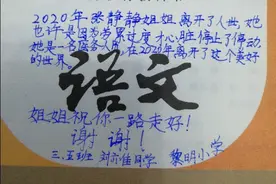 2020年张静静姐姐离开了人世,她
也许是因为劳累过度才心脏停止了停动,
她是一名医务人员,在2020年离开了这个美好
的世界。
语文
姐姐祝你一路走好!
谢谢!
三.五班 刘亦佳同学 黎明小学